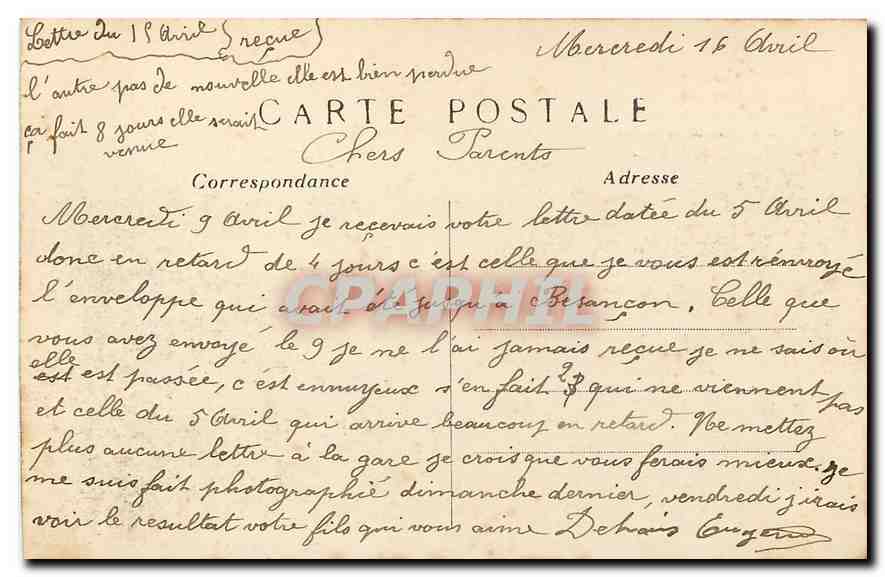 Lettre du 15 Avril (reçue)
Mercredi 16 Avril
l'autre pas de nouvelle elle est bien perdue
ça fait 8 jours elle serait
venue
CARTE POSTALE
Chers Parents
Correspondance
Adresse
Mercredi 9 Avril je reçevais votre lettre datée du 5 Avril
donc en retard de 4 jours c'est celle que je vous est rénvoyé
l'enveloppe qui avait été jusqu'à Besançon. Celle que
vous avez envoyé le 9 je ne l'ai jamais reçue je ne sais où
elle
est est passée, c'est ennuyeux s'en fait 2 qui ne viennent pas
et celle du 5 Avril qui arrive beaucoup en retard. Ne mettez
plus aucune lettre à la gare je crois que vous ferais mieux. Je
me suis fait photographié dimanche dernier, vendredi j'irais
voir le resultat votre fils qui vous aime Dehais Eugène
CPAPHIL